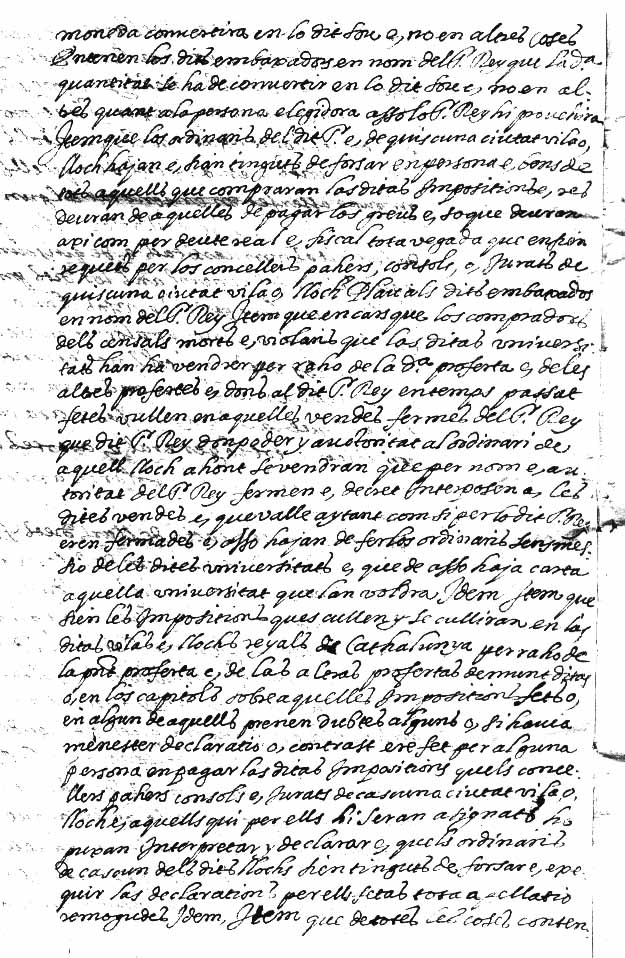 moneda convertira en lo dit fou e, no en altres coses
Entenen los dits embaxados en nom del Sr. Rey que la da.
quantitat se ha de convertir en lo dit fou e, no en al-
tres quant a la persona elegidora asso lo Sr. Rey hi provehira
Item que los ordinaris del dit Sr. e, de quiscuna ciutat vila o,
lloch hajan e, sian tinguts de forsar en persona e, bens de
tots aquells que compraran las ditas Impositions e, res
deuran de aquelles de pagar los preus e, so que deuran
axi com per deute real e, fiscal tota vegada que ensien
request per los concellers pahers, consols, o, Jurats de
quiscuna ciutat vila o, lloch Plau als dits embaxados
en nom del Sr. Rey Item que en cars que los compradors
dels censals morts e, violaris que las ditas universi-
tats han ha vendrer per raho de la da. proferta e, de les
altres profertes e, dons al dit Sr. Rey en temps passat
fetes vullen en aquelles vendes fermes del Sr. Rey
que dit Sr. Rey don poder y auctoritat al ordinari de
aquell lloch ahont se vendran que per nom e, au-
toritat del Sr. Rey fermen e, decret Interposen a, les
dites vendes e, que valle aytant com si per lo dit Sr. Rey
eren fermades e, asso hajan de fer los ordinaris sens mes-
sio de les dites universitats e, que de asso haja carta
aquella universitat que lan voldra, Idem Item que
si en les Impositions ques cullen y se culliran en las
ditas vilas e, llochs reyals de Cathalunya per raho de
la pnt proferta e, de las altras profertas demunt ditas
o, en los capitols sobre aquelles Impositions fets o,
en algun de aquells prenen dubtes alguns o, si havia
menester declaratio o, contrast ere fet per alguna
persona en pagar las ditas Impositions quels conce-
llers pahers consols e, Jurats de cascuna ciutat vila o,
lloch e, aquells qui per ells hi seran assignats ho
puxan Interpretar y declarar e, quels ordinaris
de cascun dels dits llochs sien tinguts de forsar e, exe-
quir las declarations per ells fetas tota apellatio
remogudes Idem, Item que de totes les coses conten-